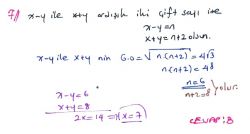 7) x-y ile x+y ardışık iki çift sayı ile
x-y=n
x+y=n+2 olsun.
x-y ile x+y nin G.O=√n.(n+2)=4√3
n(n+2)=48
n=6
n+2=8 olur.
x-y=6
x+y=8
2x=14 ⇒ x=7
CEVAP:B